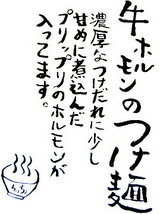 牛ホルモンのつけ麺
濃厚なつけだれに少し
甘めに煮込んだ
プリップリのホルモンが
入ってます。